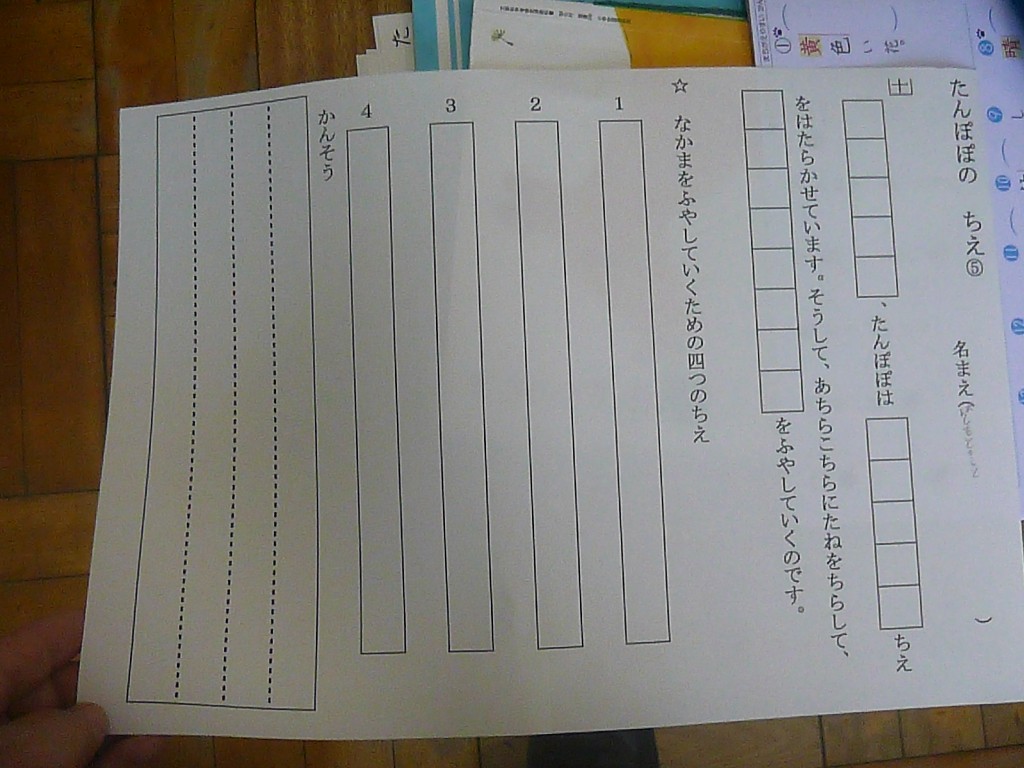 たんぽぽの　ちえ⑤　　名まえ（　　　）
土
、たんぽぽは　ちえ
をはたらかせています。そうして、あちらこちらにたねをちらして、
をふやしていくのです。
☆　なかまをふやしていくための四つのちえ
1
2
3
4
かんそう
た
①（　　　）
黄色い花。